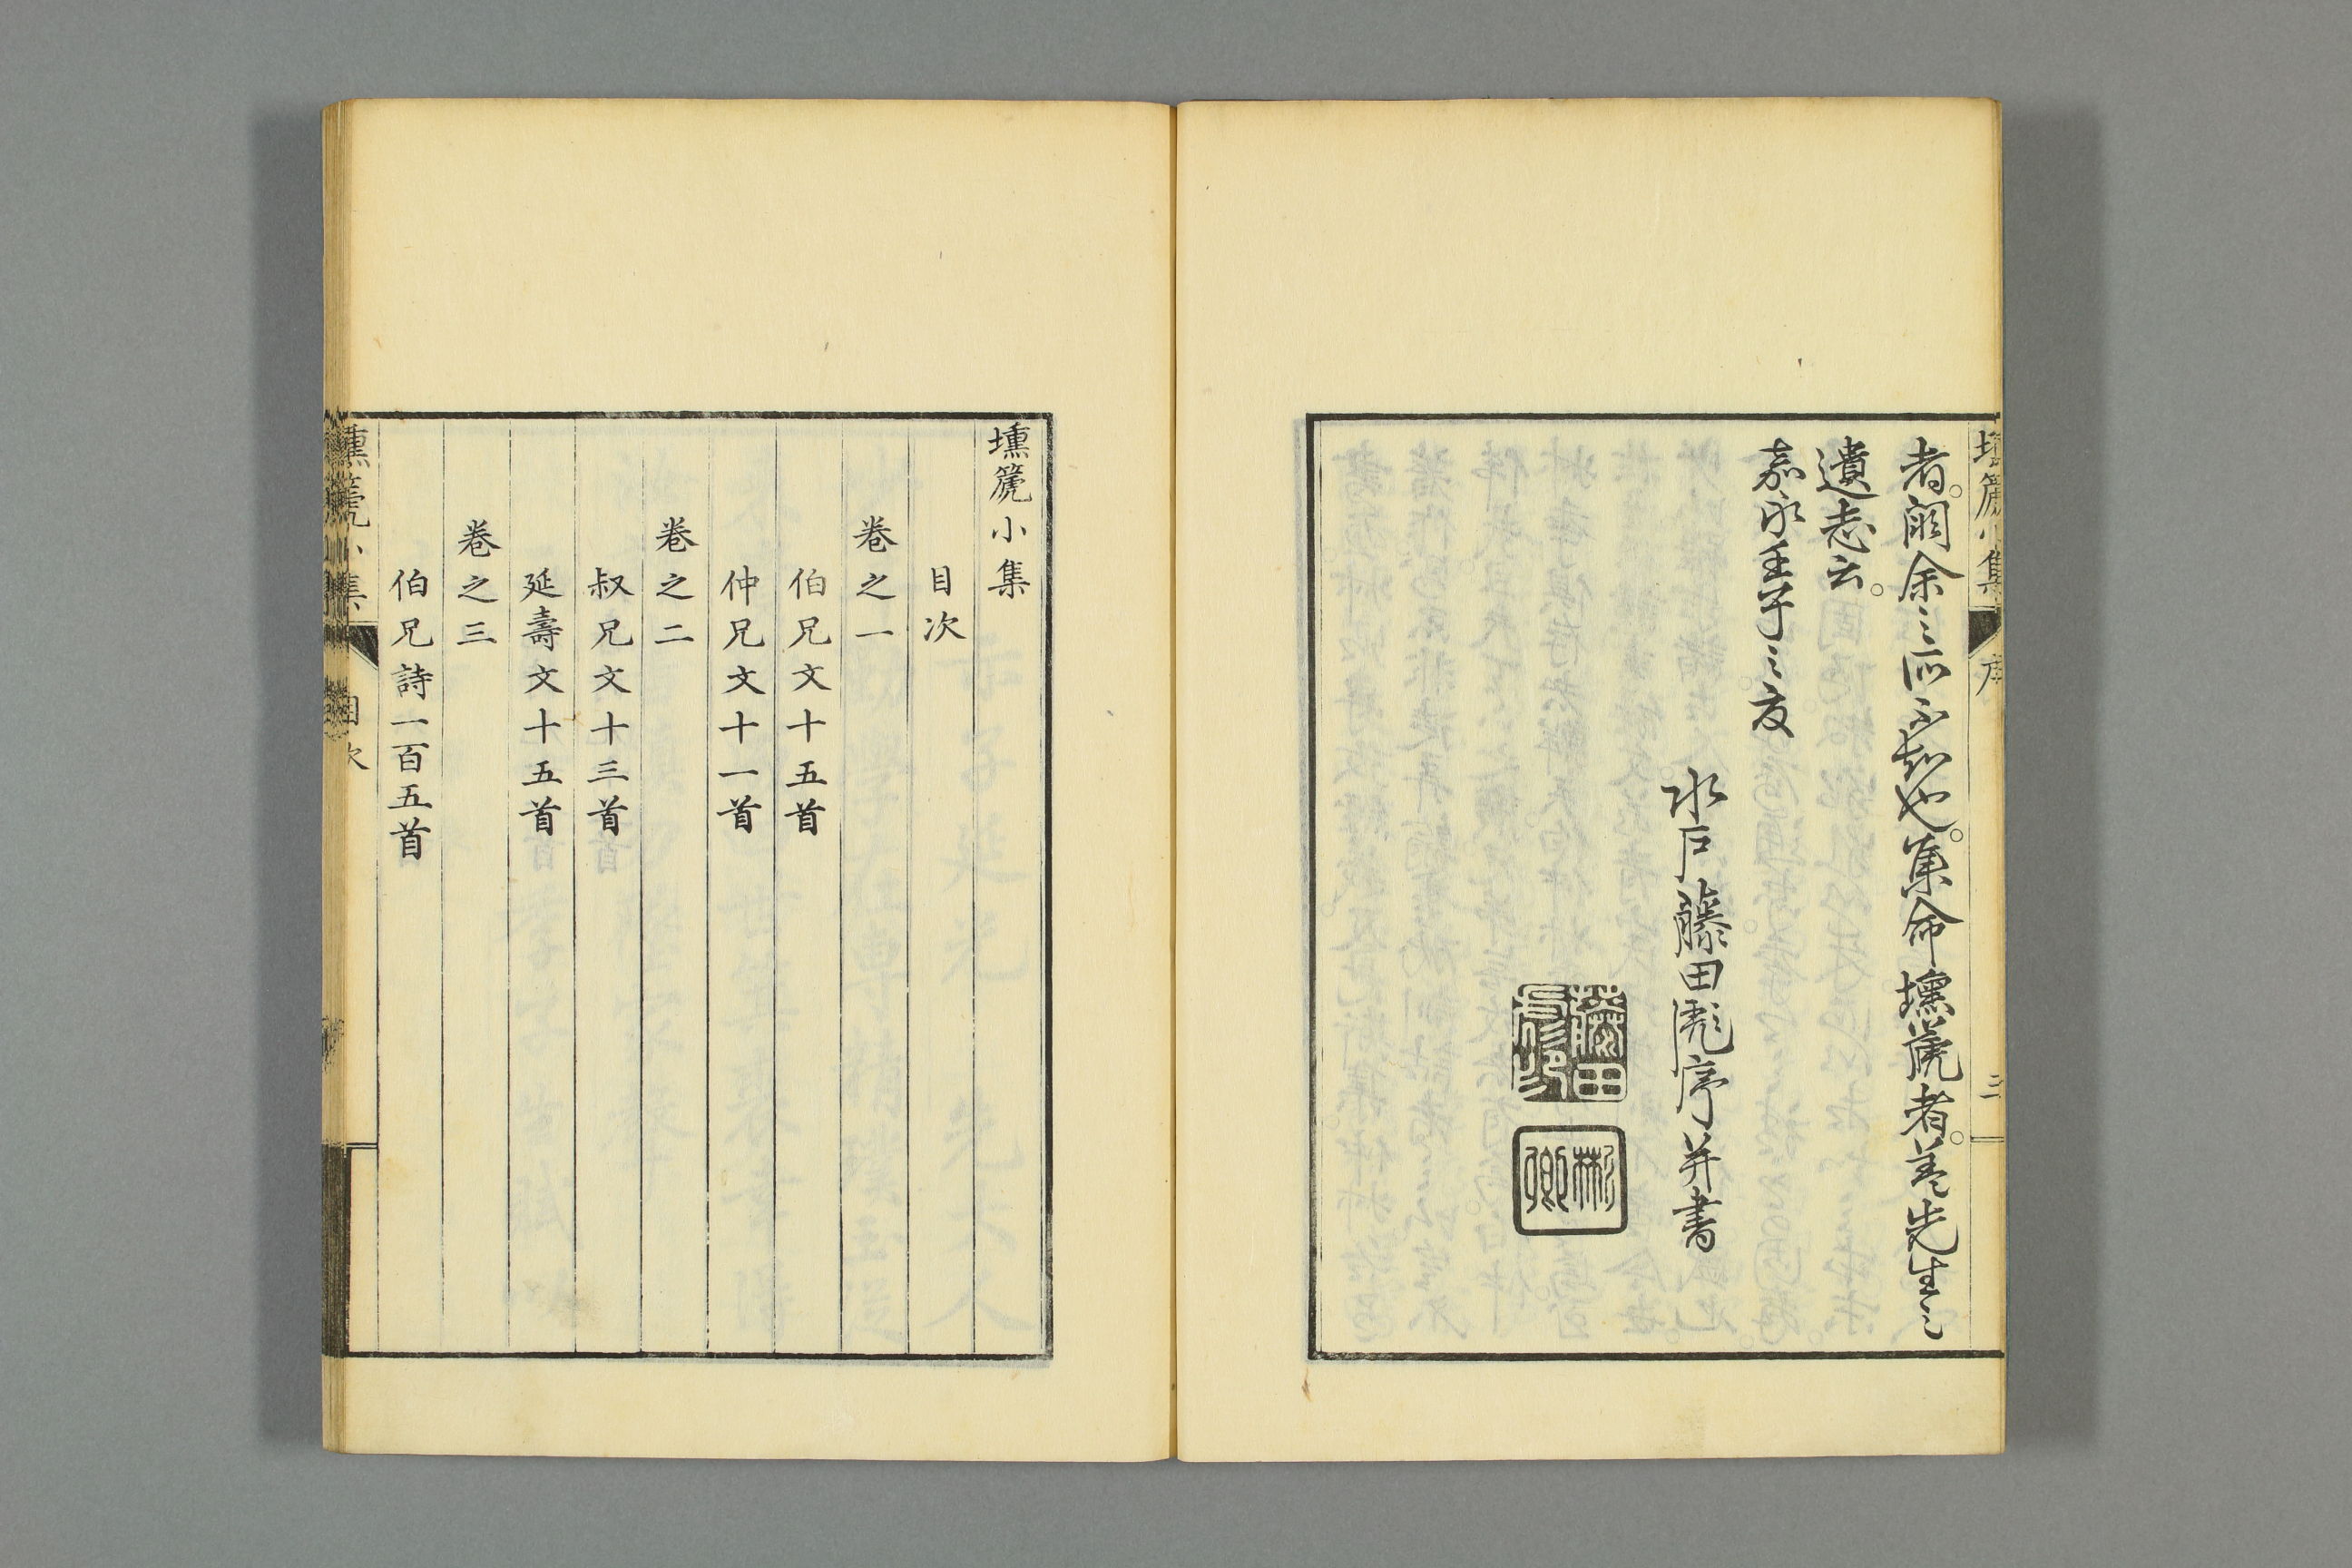 壎篪小集 序 三
者。闕余之所不知也。集命壎篪者。蓋先生之
遺志云。
嘉永壬子之夏
水戸藤田彪序并書
藤田
彬卿
壎篪小集
目次
卷之一
伯兄文十五首
仲兄文十一首
卷之二
叔兄文十三首
延壽文十五首
卷之三
伯兄詩一百五首
壎篪小集 目次